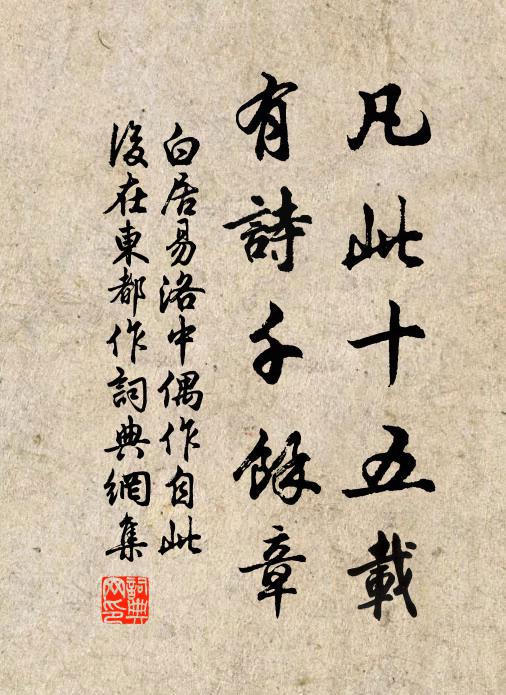 凡此十五載
有詩千餘章
白居易洛中偶作自此
後在東都作詞典網集
詞典
网印